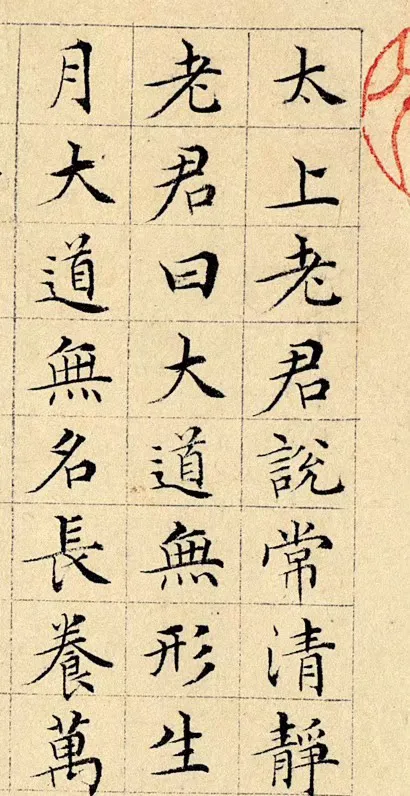 太上老君說常清靜
老君曰大道無形生
月大道無名長養萬